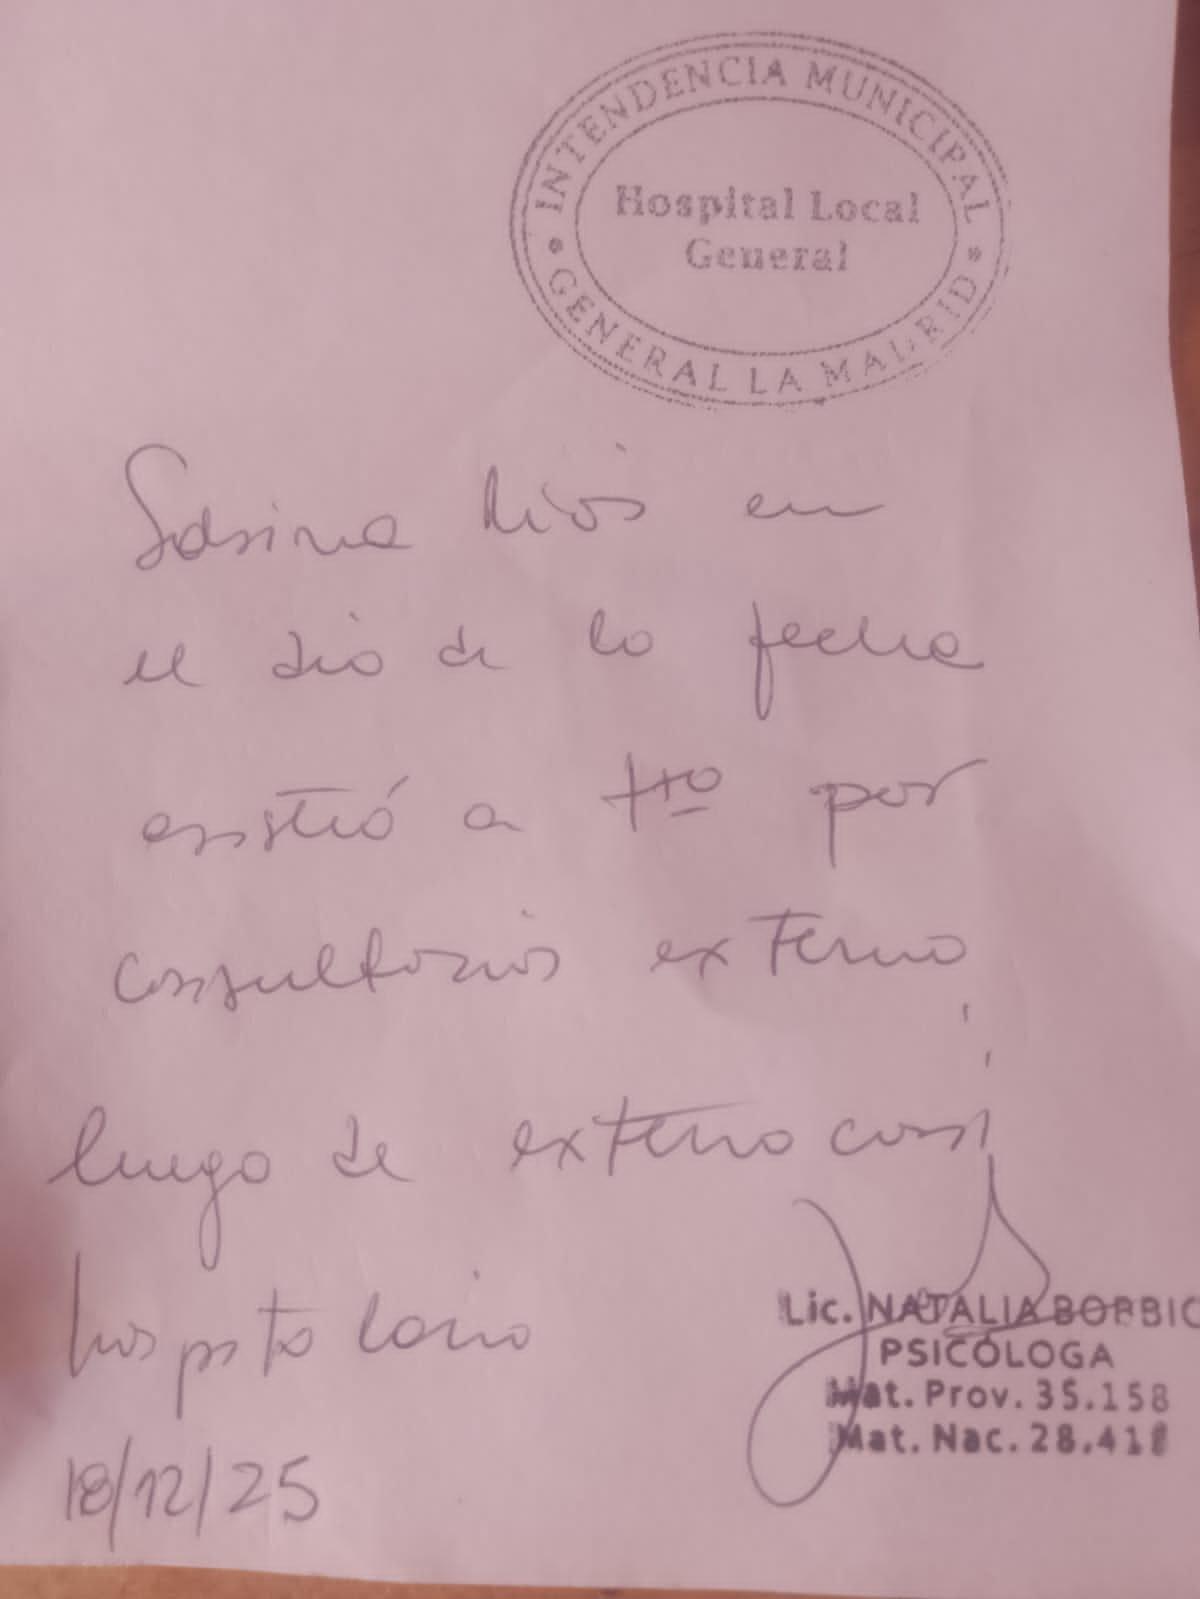 INTENDENCIA MUNICIPAL
Hospital Local
General
GENERAL LA MADRID
Sabina Rios en
el dia de la fecha
asistió a tto por
consultorios externo
luego de externa
hospitalario
18/12/25
Lic. NATALIA BORBIC
PSICÓLOGA
Mat. Prov. 35.158
Mat. Nac. 28.418